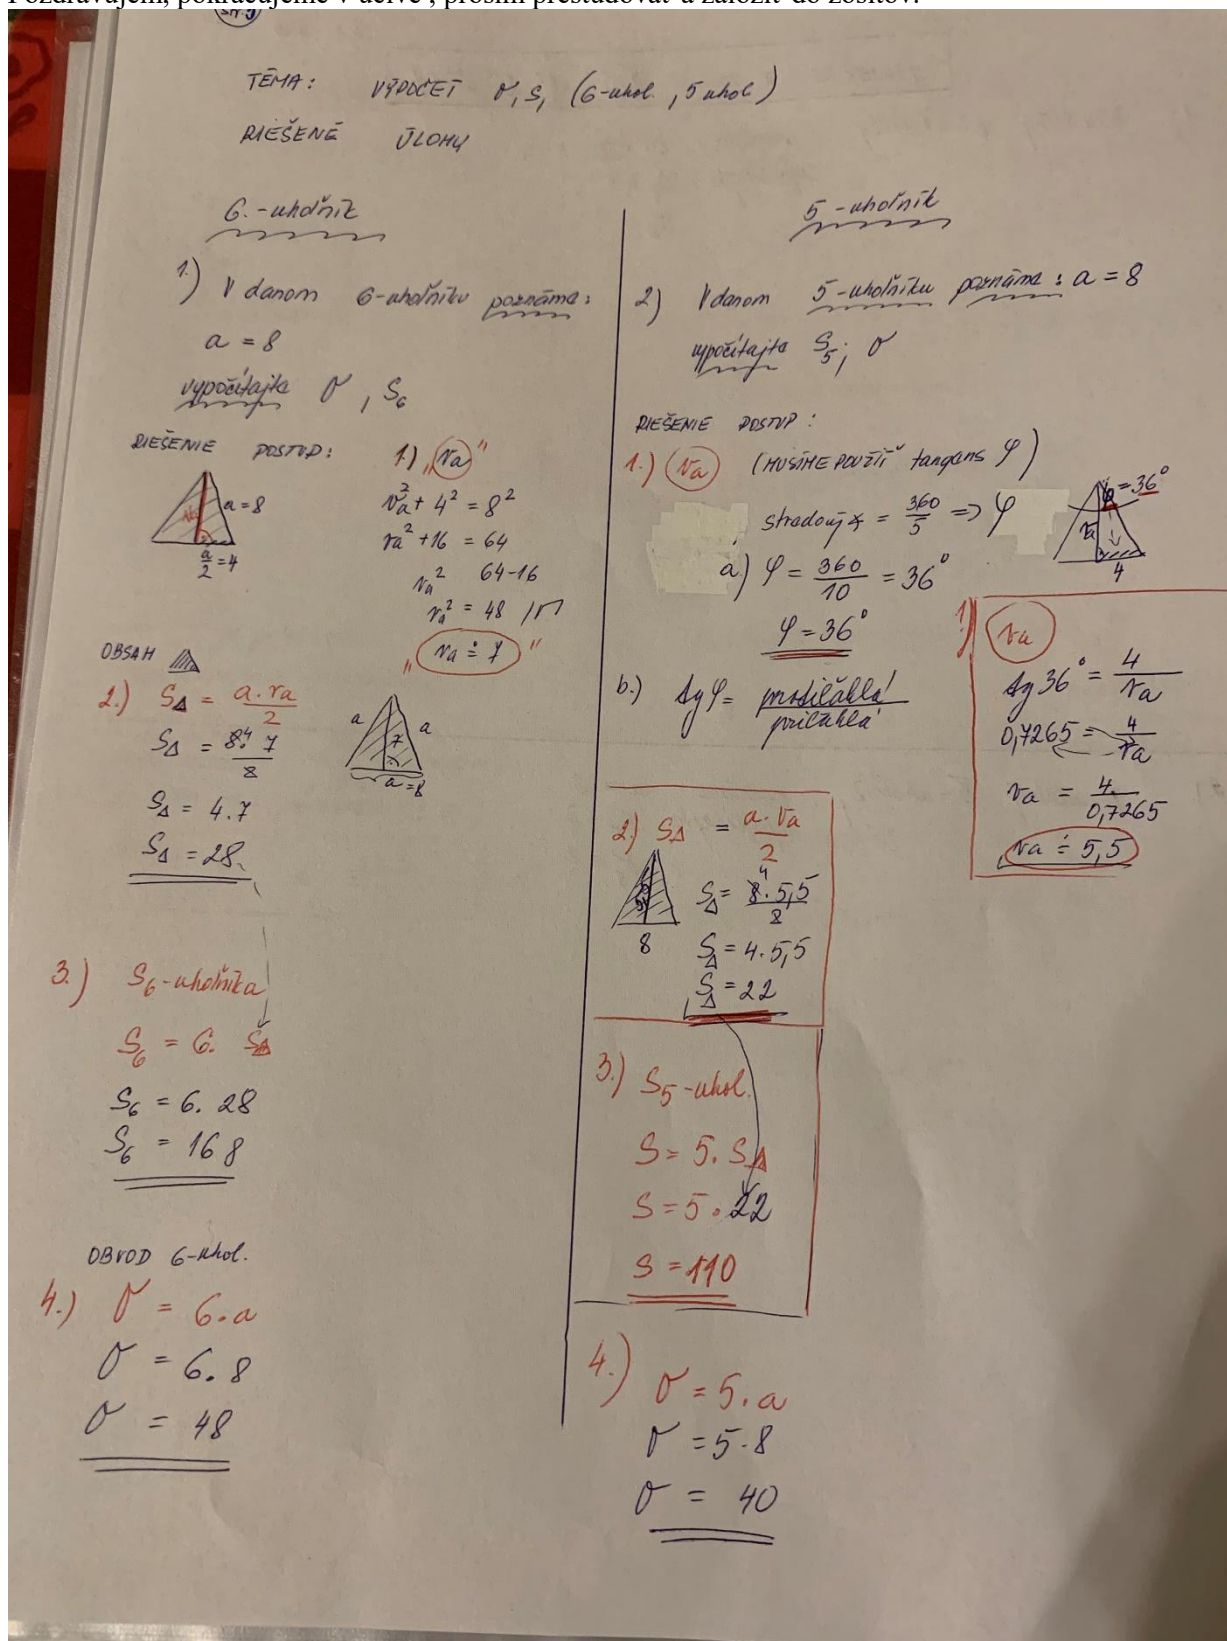 TÉMA: VÝPOČET O, S, (6-uhol., 5uhol)
RIEŠENÉ ÚLOHY
6.-uholník
1.) V danom 6-uholníku poznáme:
a = 8
vypočítajte O, S₆
RIEŠENIE POSTUP: 1.) „va"
a = 8
a/2 = 4
va² + 4² = 8²
va² + 16 = 64
va² 64-16
va² = 48 /√
„va ≐ 7"
OBSAH
2.) S△ = a.va/2
S△ = 8.⁴ 7/2
S△ = 4.7
S△ = 28
a a
7
a = 8
3.) S6-uholníka
S₆ = 6. S△
S₆ = 6. 28
S₆ = 168
OBVOD 6-uhol.
4.) O = 6.a
O = 6.8
O = 48
5-uholník
2) V danom 5-uholníku poznáme: a = 8
vypočítajte S₅; O
RIEŠENIE POSTUP:
1.) va (MUSÍME POUŽIŤ tangens φ)
stredový ∢ = 360/5 => φ
φ = 36°
va
4
a.) φ = 360/10 = 36°
φ = 36°
b.) tg φ = protiľahlá/priľahlá
1) va
tg 36° = 4/va
0,7265 = 4/va
va = 4/0,7265
va ≐ 5,5
2.) S△ = a.va/2
8
S△ = 8.⁴ 5,5/2
S△ = 4.5,5
S△ = 22
3.) S5-uhol.
S = 5. S△
S = 5.22
S = 110
4.) O = 5.a
O = 5.8
O = 40